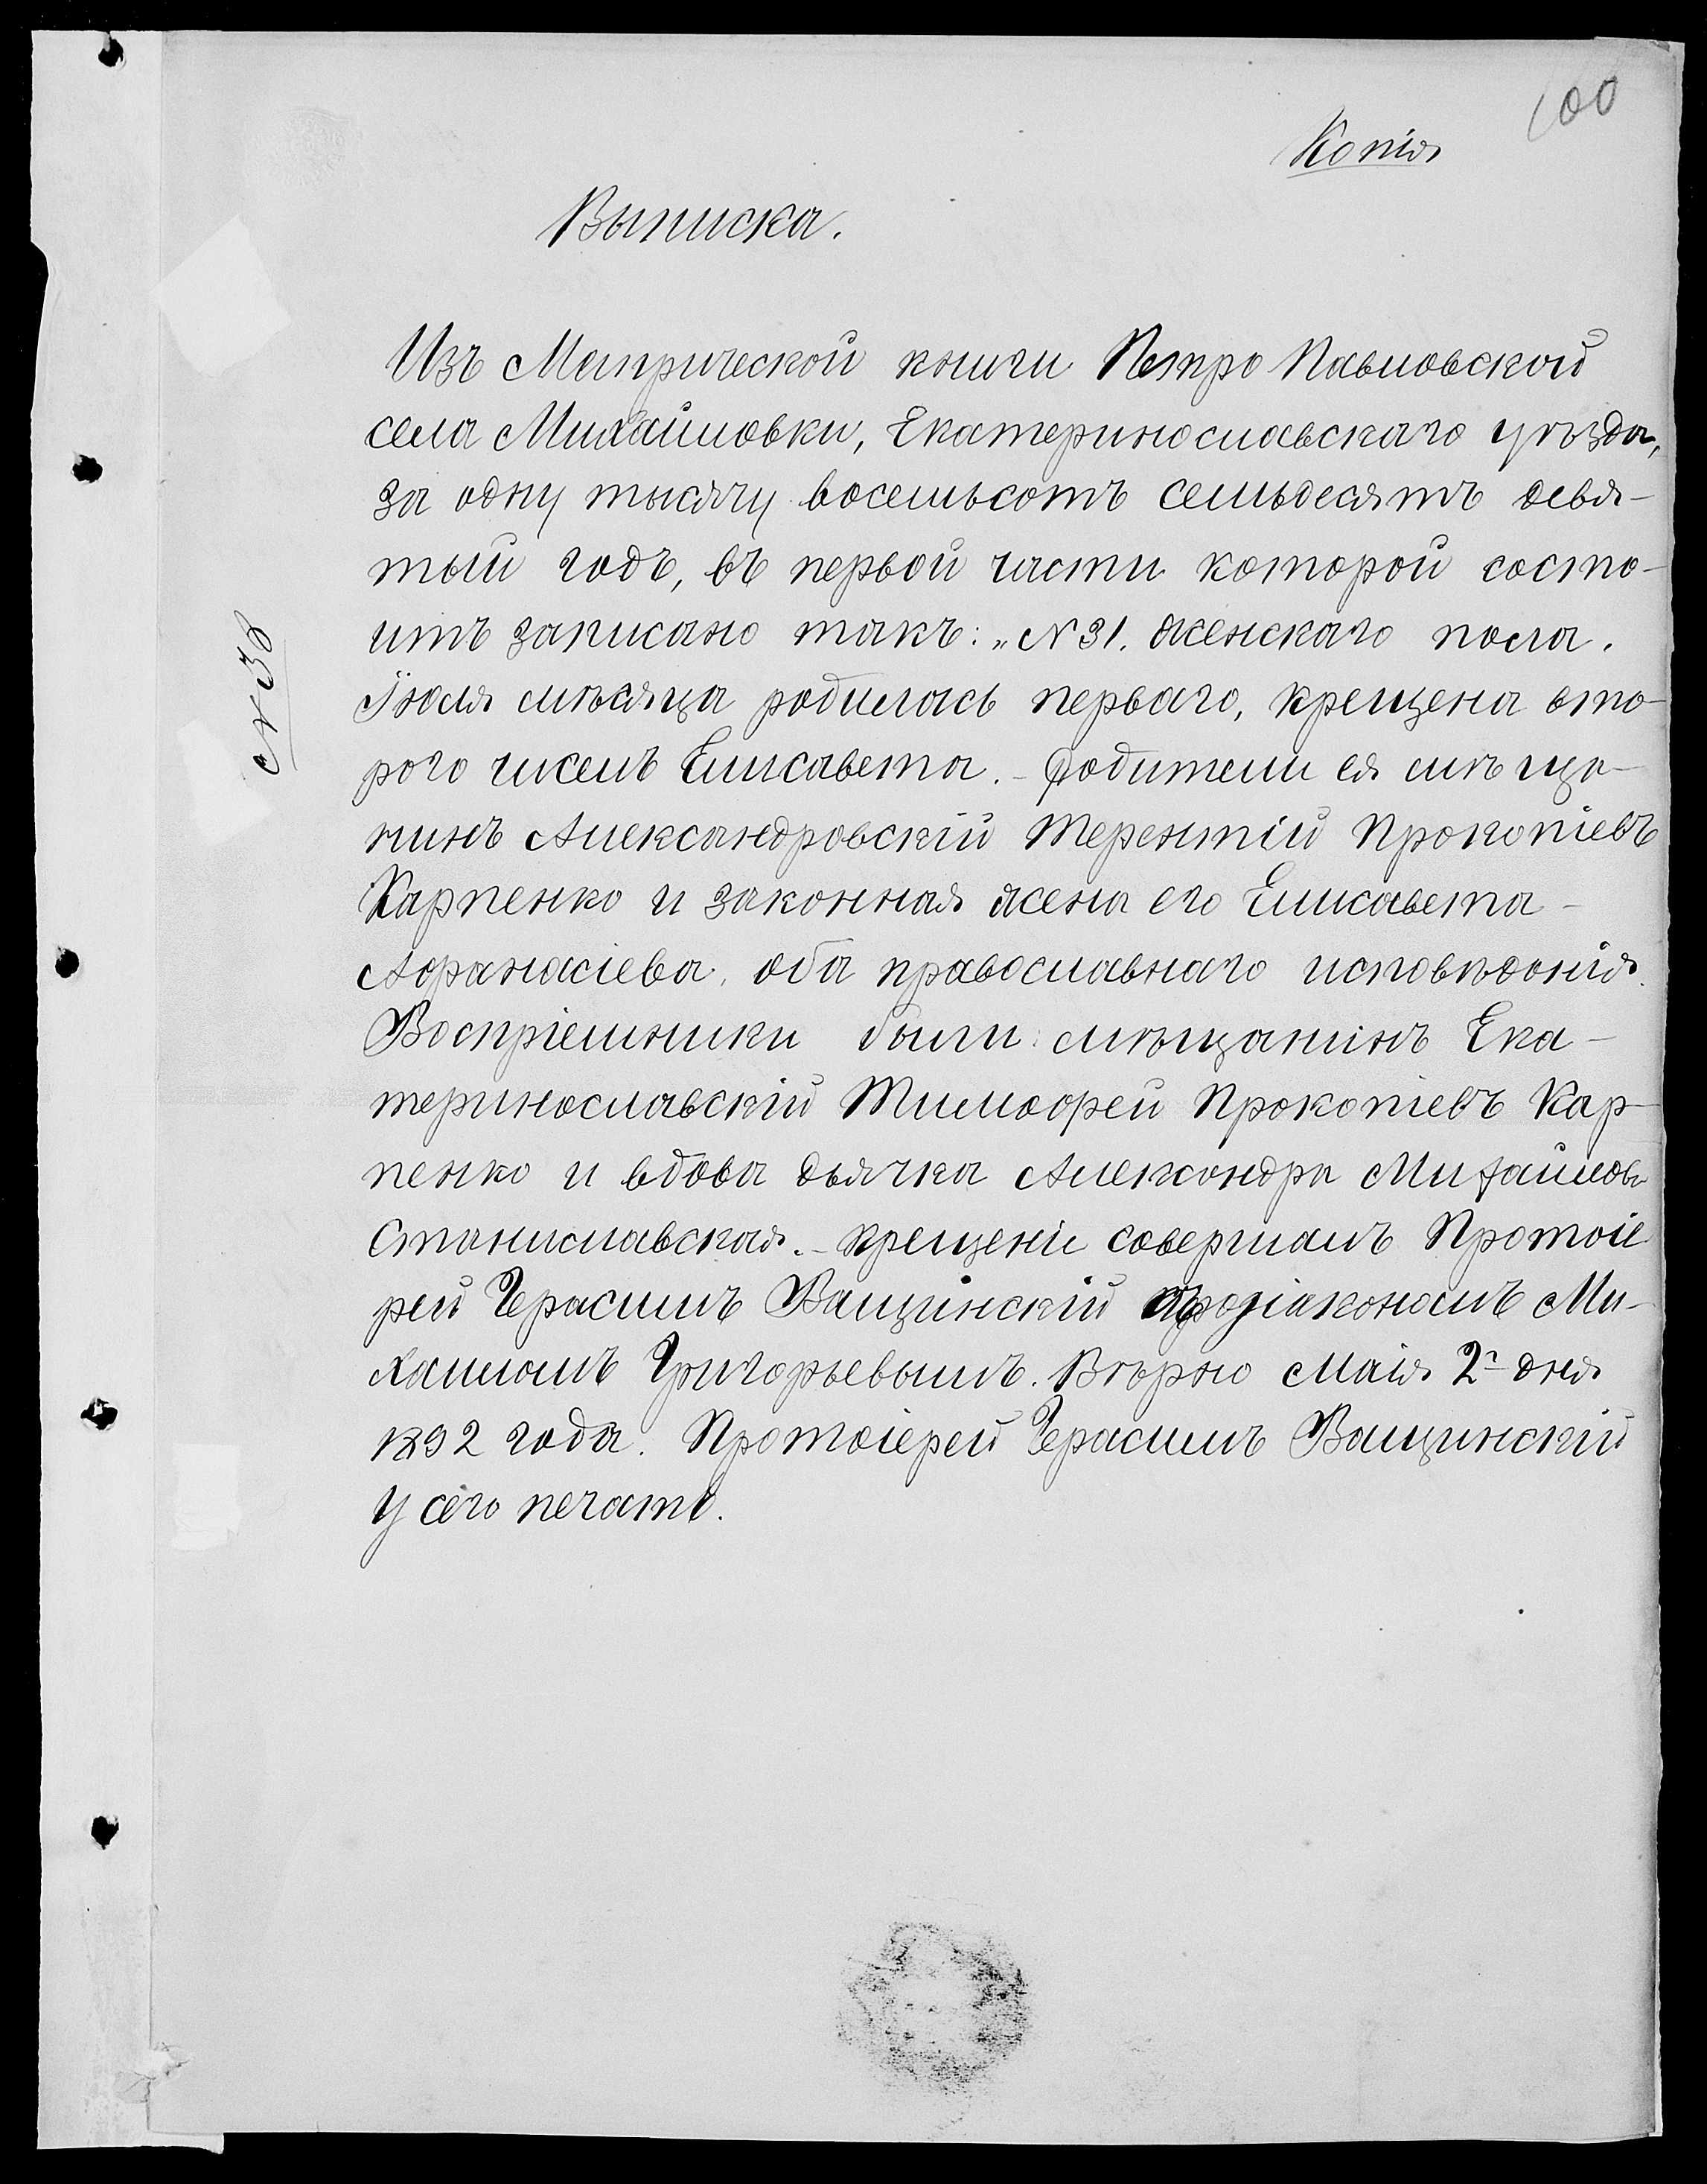 100
Копія
Выписка.
Изъ Метрической книги Петро Павловской
села Михайловки, Екатеринославскаго уѣзда,
за одну тысячу восемьсотъ семьдесятъ девя-
тый годъ, въ первой части которой состо-
итъ записано такъ: „N 31. женскаго пола.
Іюля мѣсяца родилась перваго, крещена вто-
рого чиселъ Елисавета. - Родители ея мѣща-
нинъ Александровскій Терентій Прокопіевъ
Карпенко и законная жена его Елисавета -
Афанасіева, оба православнаго исповѣданія.
Воспріемники были: мѣщанинъ Ека-
теринославскій Тимофей Прокопіевъ Кар-
пенко и вдова дьячка Александра Михайлова
Станиславская. - Крещеніе совершалъ Протоіе
рей Герасимъ Ващинскій съ діакономъ Ми-
хаиломъ Григорьевымъ. Вѣрно Маія 2го дня
1892 года. Протоіерей Герасимъ Ващинскій
У сего печать.
N 38